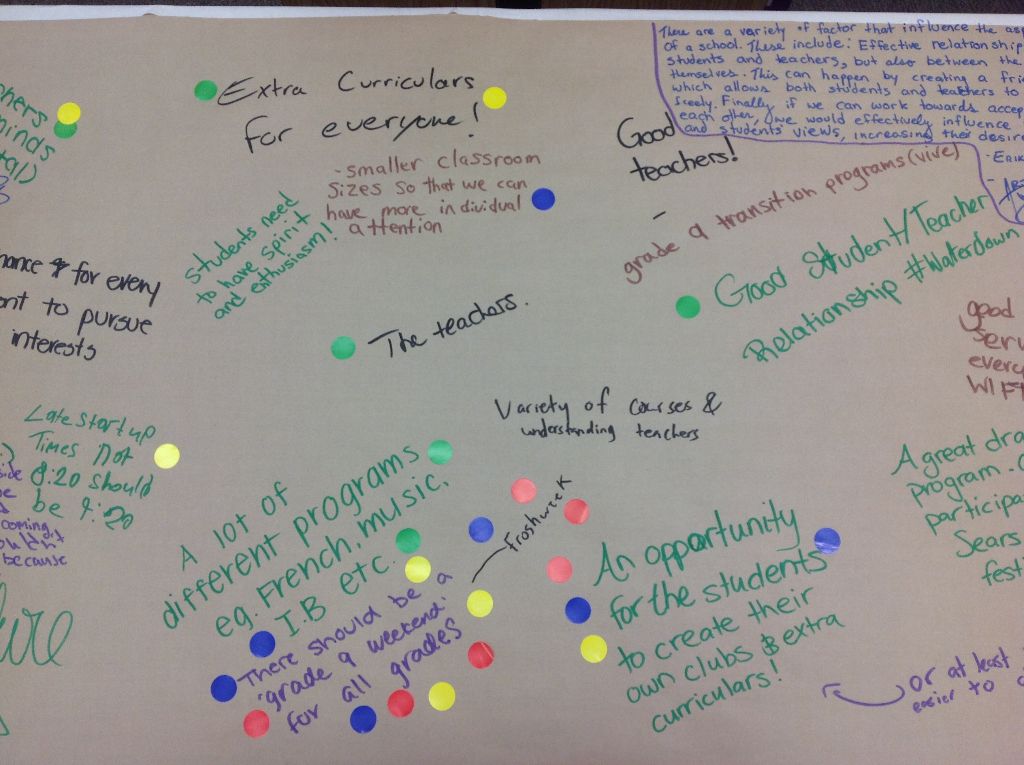 Extra Curriculars
for everyone!
- smaller classroom
sizes so that we can
have more individual
attention
students need
to have spirit
and enthusiasm!
Good
teachers!
There are a variety of factor that influence the
of a school. These include: Effective relationship
students and teachers, but also between the
themselves. This can happen by creating a
which allows both students and teachers to
freely. Finally if we can work towards
each other, we would effectively influence
and students' views, increasing their desire
- ERIK
grade 9 transition programs (vive)
Good Student/Teacher
Relationship #Waterdown
for every
to pursue
interests
The teachers.
good
every
Variety of courses &
understanding teachers
Late start up
Times not
8:20 should
be 9:20
coming
because
A lot of
different programs
eg. French, music,
I.B etc.
There should be a
'grade 9 weekend'
for all grades
froshweek
An opportunity
for the students
to create their
own clubs & extra
curriculars!
A great
program
Sears
or at least
easier to